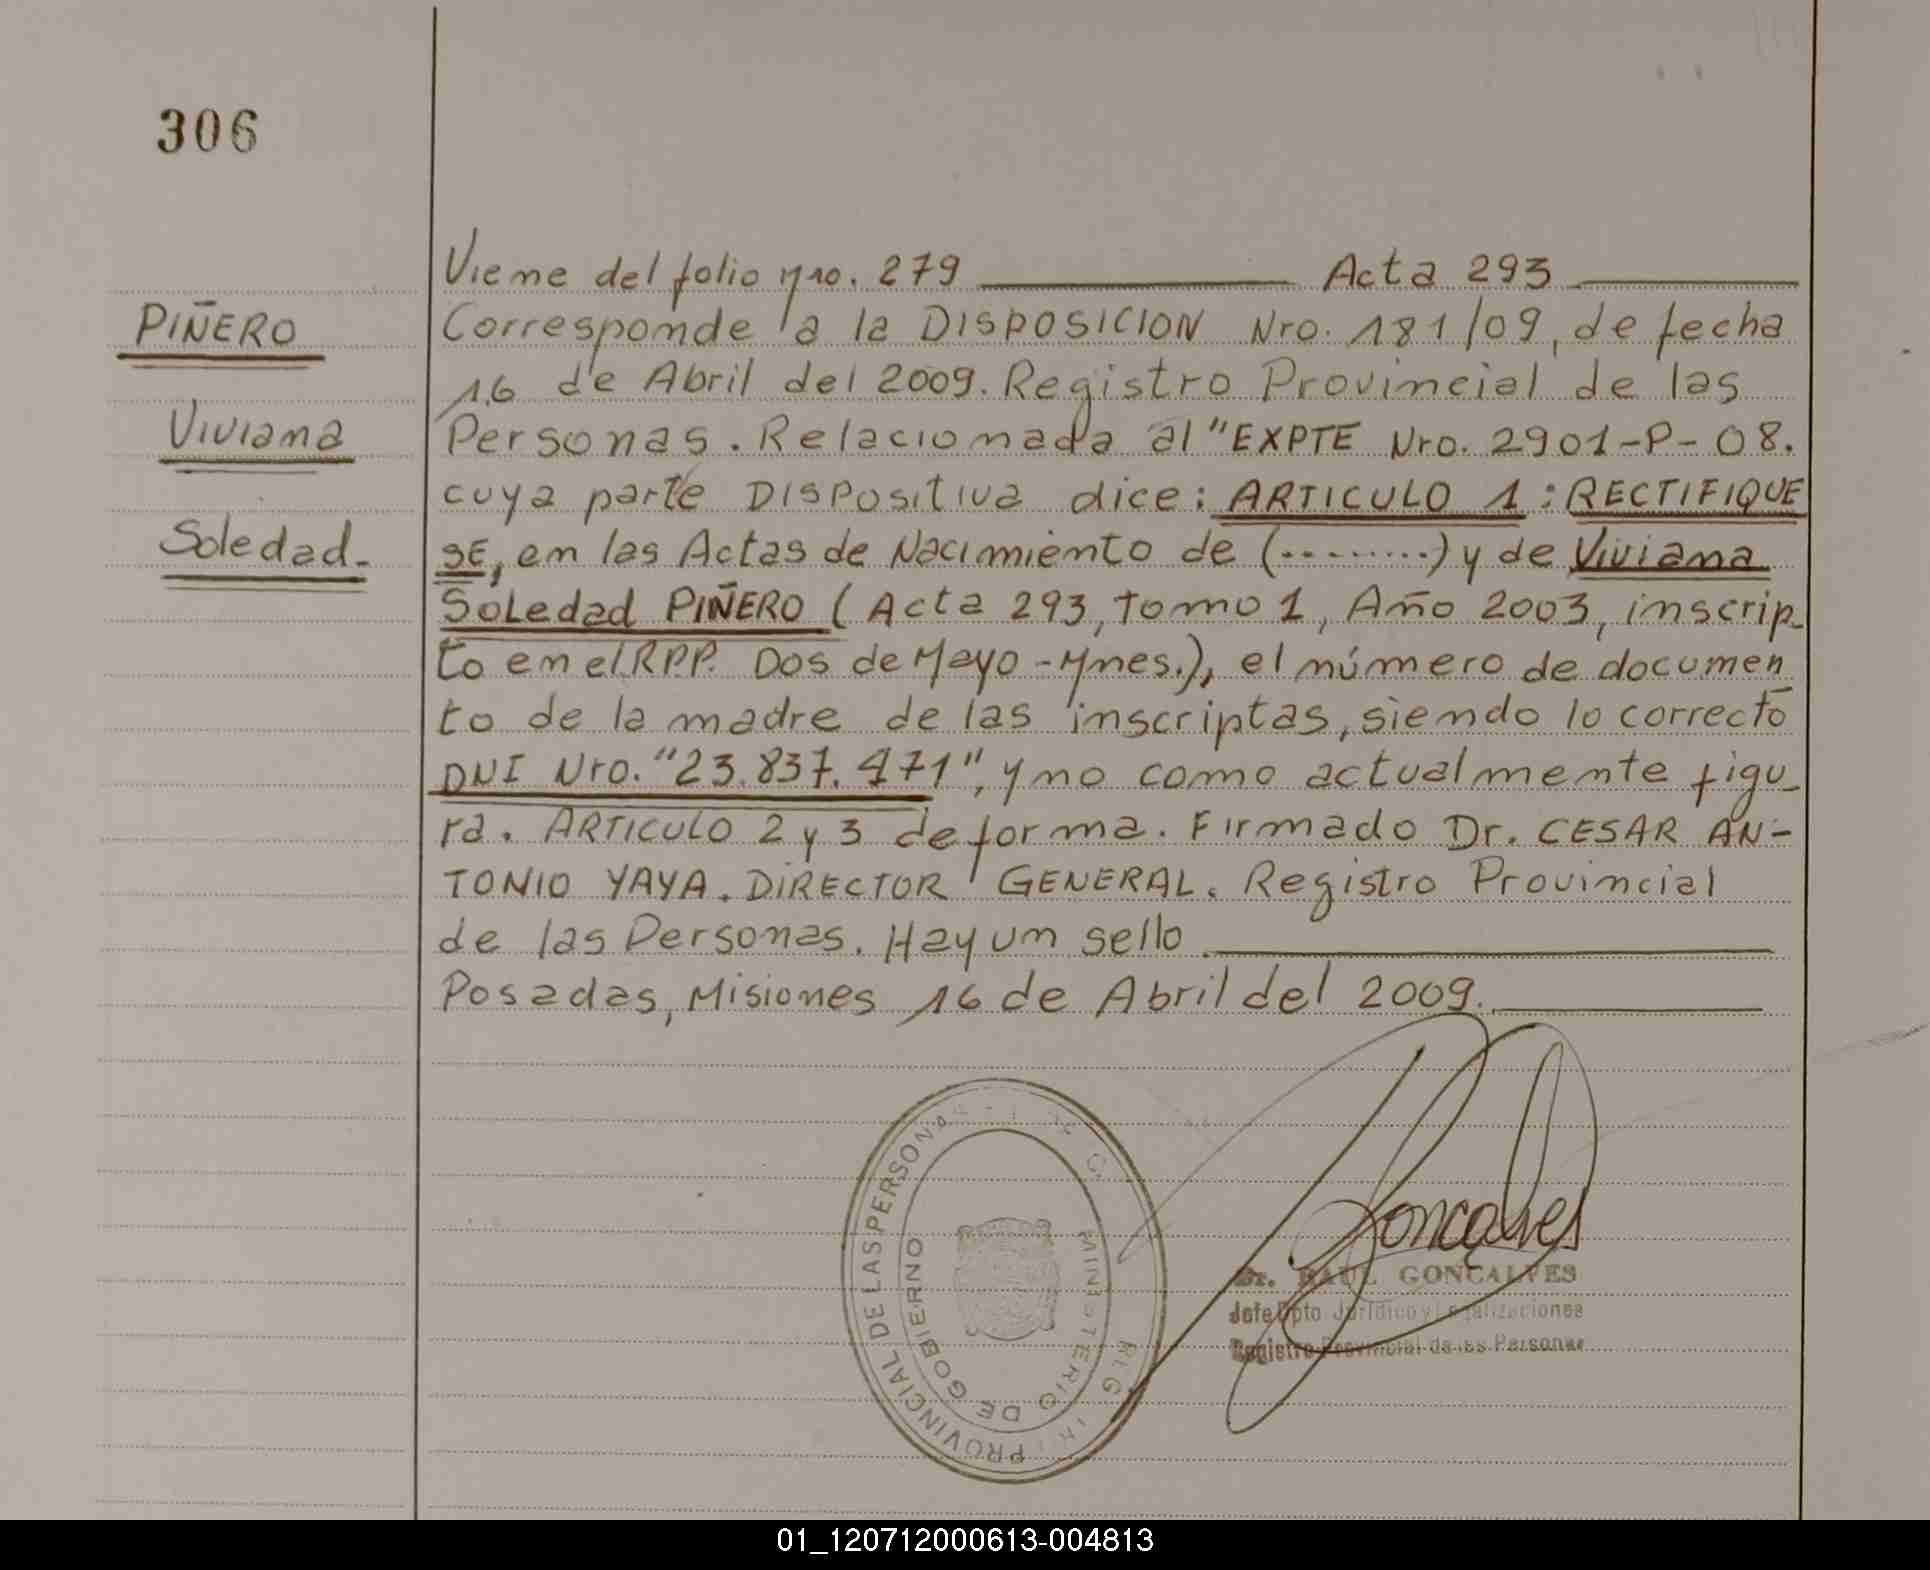 306
PIÑERO
Viviana
Soledad.
Viene del folio nro. 279 Acta 293
Corresponde a la DISPOSICION Nro. 181/09, de fecha
16 de Abril del 2009. Registro Provincial de las
Personas. Relacionada al "EXPTE Nro. 2901-P-08.
cuya parte DISPOSITIVA dice: ARTICULO 1: RECTIFIQUE
SE, en las Actas de Nacimiento de (........) y de Viviana
Soledad PIÑERO (Acta 293, tomo 1, Año 2003, inscrip-
to en el R.P.P. Dos de Mayo - Mnes.), el número de documen
to de la madre de las inscriptas, siendo lo correcto
DNI Nro. "23.837.471", y no como actualmente figu-
ra. ARTICULO 2 y 3 de forma. Firmado Dr. CESAR AN-
TONIO YAYA. DIRECTOR GENERAL. Registro Provincial
de las Personas. Hay un sello
Posadas, Misiones 16 de Abril del 2009.
PROVINCIAL DE LAS PERSONAS
MINISTERIO DE GOBIERNO
Goncalves
Dr. RAUL GONCALVES
Jefe Dpto. Jurídico y Legalizaciones
Registro Provincial de las Personas
01_120712000613-004813